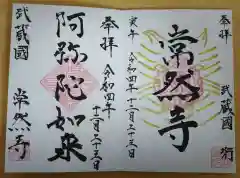 奉拝
常然寺
寅年
令和四年十二月二十三日
武蔵國
奉拝
令和四年
十二月二十三日
阿弥陀如来
武蔵國
常然寺